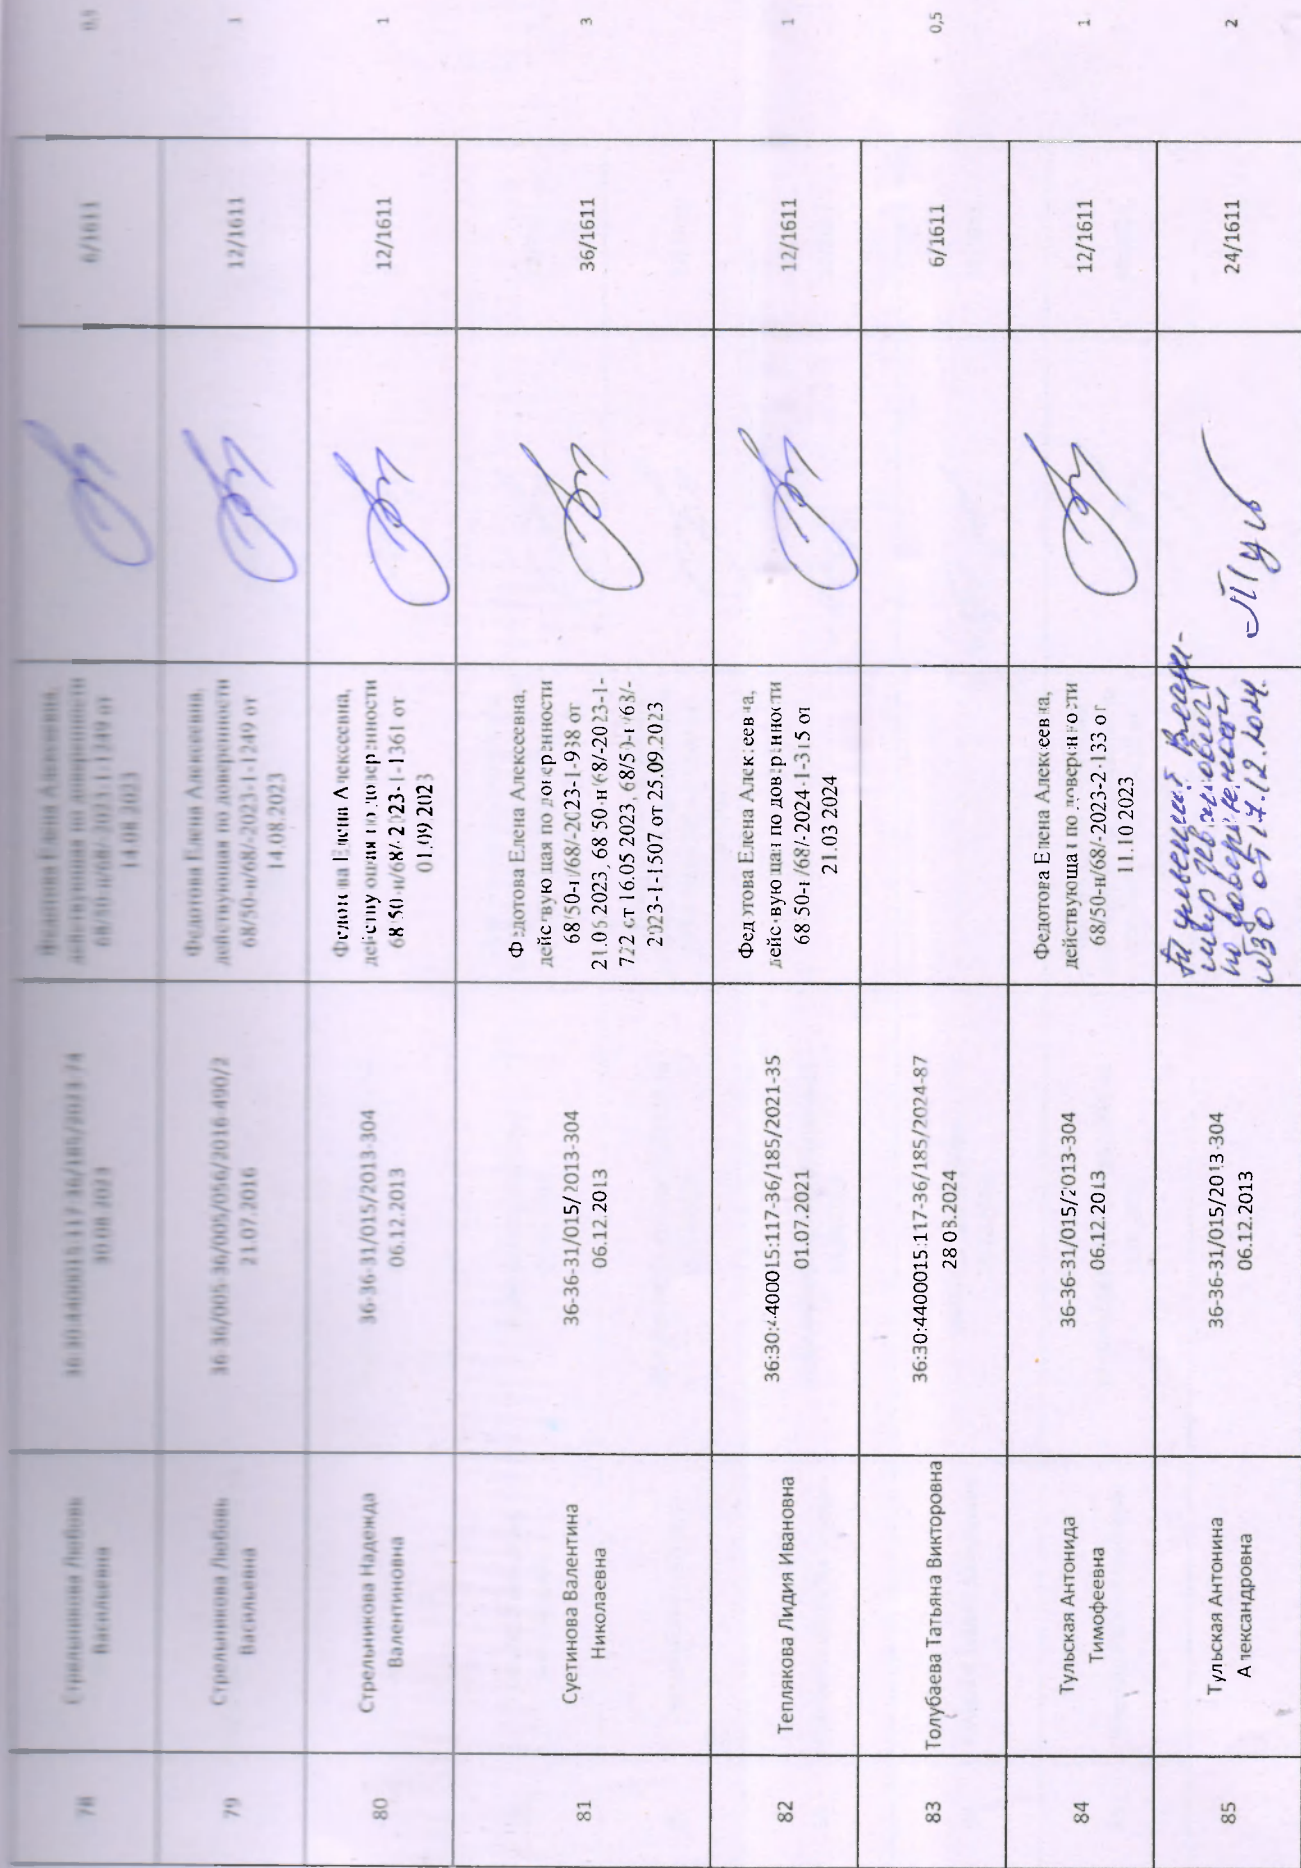 78
Стрельникова Любовь
Васильевна
36:30:4400015:117-36/185/2023-74
30.08.2023
Федотова Елена Алексеевна,
действующая по доверенности
68/50-н/68/-2023-1-1249 от
14.08.2023
6/1611
0,5
79
Стрельникова Любовь
Васильевна
36-36/005-36/005/056/2016-490/2
21.07.2016
Федотова Елена Алексеевна,
действующая по доверенности
68/50-н/68/-2023-1-1249 от
14.08.2023
12/1611
1
80
Стрельникова Надежда
Валентиновна
36-36-31/015/2013-304
06.12.2013
Федотова Елена Алексеевна,
действующая по доверенности
68/50-н/68/-2023-1-1361 от
01.09.2023
12/1611
1
81
Суетинова Валентина
Николаевна
36-36-31/015/2013-304
06.12.2013
Федотова Елена Алексеевна,
действующая по доверенности
68/50-н/68/-2023-1-938 от
21.06.2023, 68/50-н/68/-2023-1-
722 от 16.05.2023, 68/50-н/68/-
2023-1-1507 от 25.09.2023
36/1611
3
82
Теплякова Лидия Ивановна
36:30:4400015:117-36/185/2021-35
01.07.2021
Федотова Елена Алексеевна,
действующая по доверенности
68/50-н/68/-2024-1-315 от
21.03.2024
12/1611
1
83
Толубаева Татьяна Викторовна
36:30:4400015:117-36/185/2024-87
28.03.2024
6/1611
0,5
84
Тульская Антонида
Тимофеевна
36-36-31/015/2013-304
06.12.2013
Федотова Елена Алексеевна,
действующая по доверенности
68/50-н/68/-2023-2-133 от
11.10.2023
12/1611
1
85
Тульская Антонина
Александровна
36-36-31/015/2013-304
06.12.2013
Влади-
мир
по доверенности
от 17.12.2024.
24/1611
2